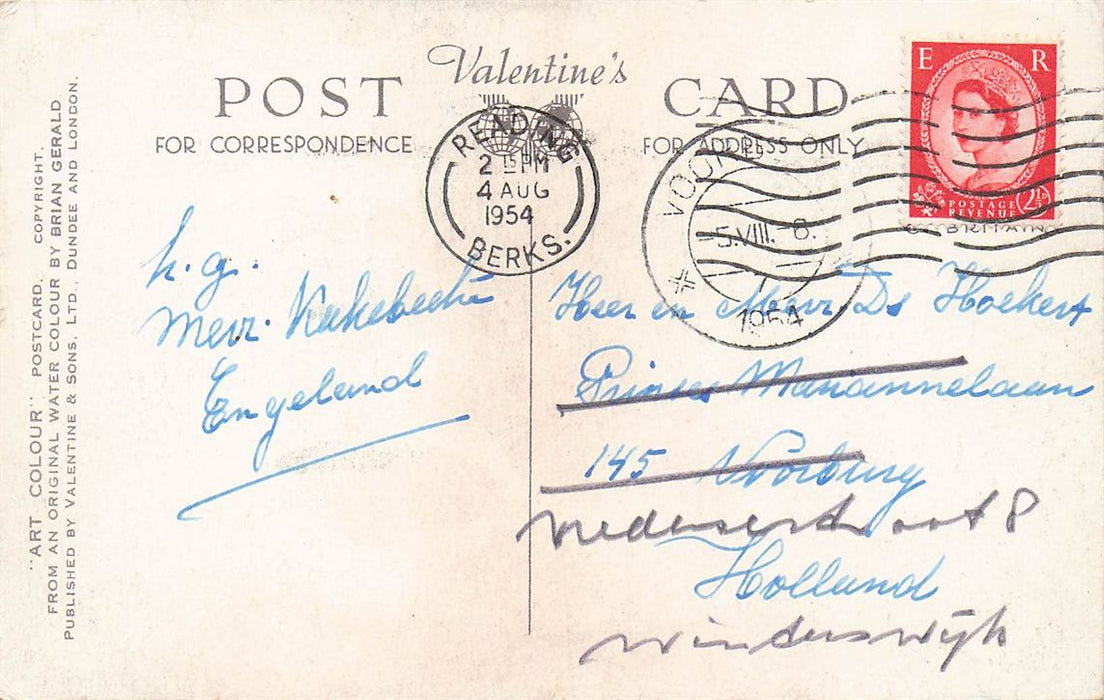 Valentine's
POST CARD
FOR CORRESPONDENCE
FOR ADDRESS ONLY
READING
2 15 PM
4 AUG
1954
BERKS.
VOOR
5.VIII. 8.
1954
E R
POSTAGE
REVENUE
2½D
h.g.
Mevr.
Engeland
Heer en Mevr. Ds Hoekert
Prinses Mariannelaan
145 Voorburg
8
Holland
Winterswijk
"ART COLOUR" POSTCARD. COPYRIGHT.
FROM AN ORIGINAL WATER COLOUR BY BRIAN GERALD
PUBLISHED BY VALENTINE & SONS, LTD., DUNDEE AND LONDON.